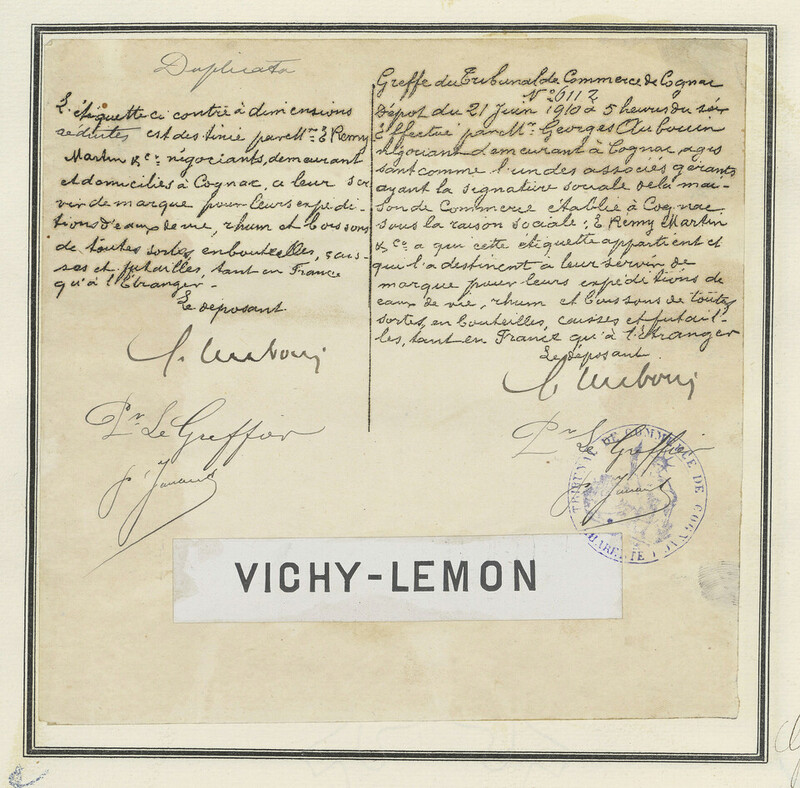 Duplicata
L'étiquette ci contre à dimensions
réduites est destinée par Mrs E Remy
Martin & Co. négociants, demeurant
et domiciliés à Cognac, a leur ser
vir de marque pour leurs expédi-
tions d'eaux de vie, rhum et boissons
de toutes sortes, en bouteilles, cais-
ses et futailles, tant en France
qu'à l'Etranger -
Le déposant
Pr Le Greffier
Greffe du Tribunal de Commerce de Cognac
No 6112
Dépot du 21 Juin 1910 à 5 heures du soir
Effectué par Mr Georges Aubouin
négociant demeurant à Cognac, agis
sant comme l'un des associés gérants
ayant la signature sociale de la mai-
son de Commerce établie à Cognac
sous la raison sociale : E Remy Martin
& Co. a qui cette étiquette appartient et
qui l'a destinent à leur servir de
marque pour leurs expéditions de
eaux de vie, rhum et boissons de toutes
sortes, en bouteilles, caisses et futail-
les, tant en France qu'à l'étranger
Le déposant
Pr Le Greffier
TRIBUNAL DE COMMERCE DE COGNAC
CHARENTE
VICHY-LEMON